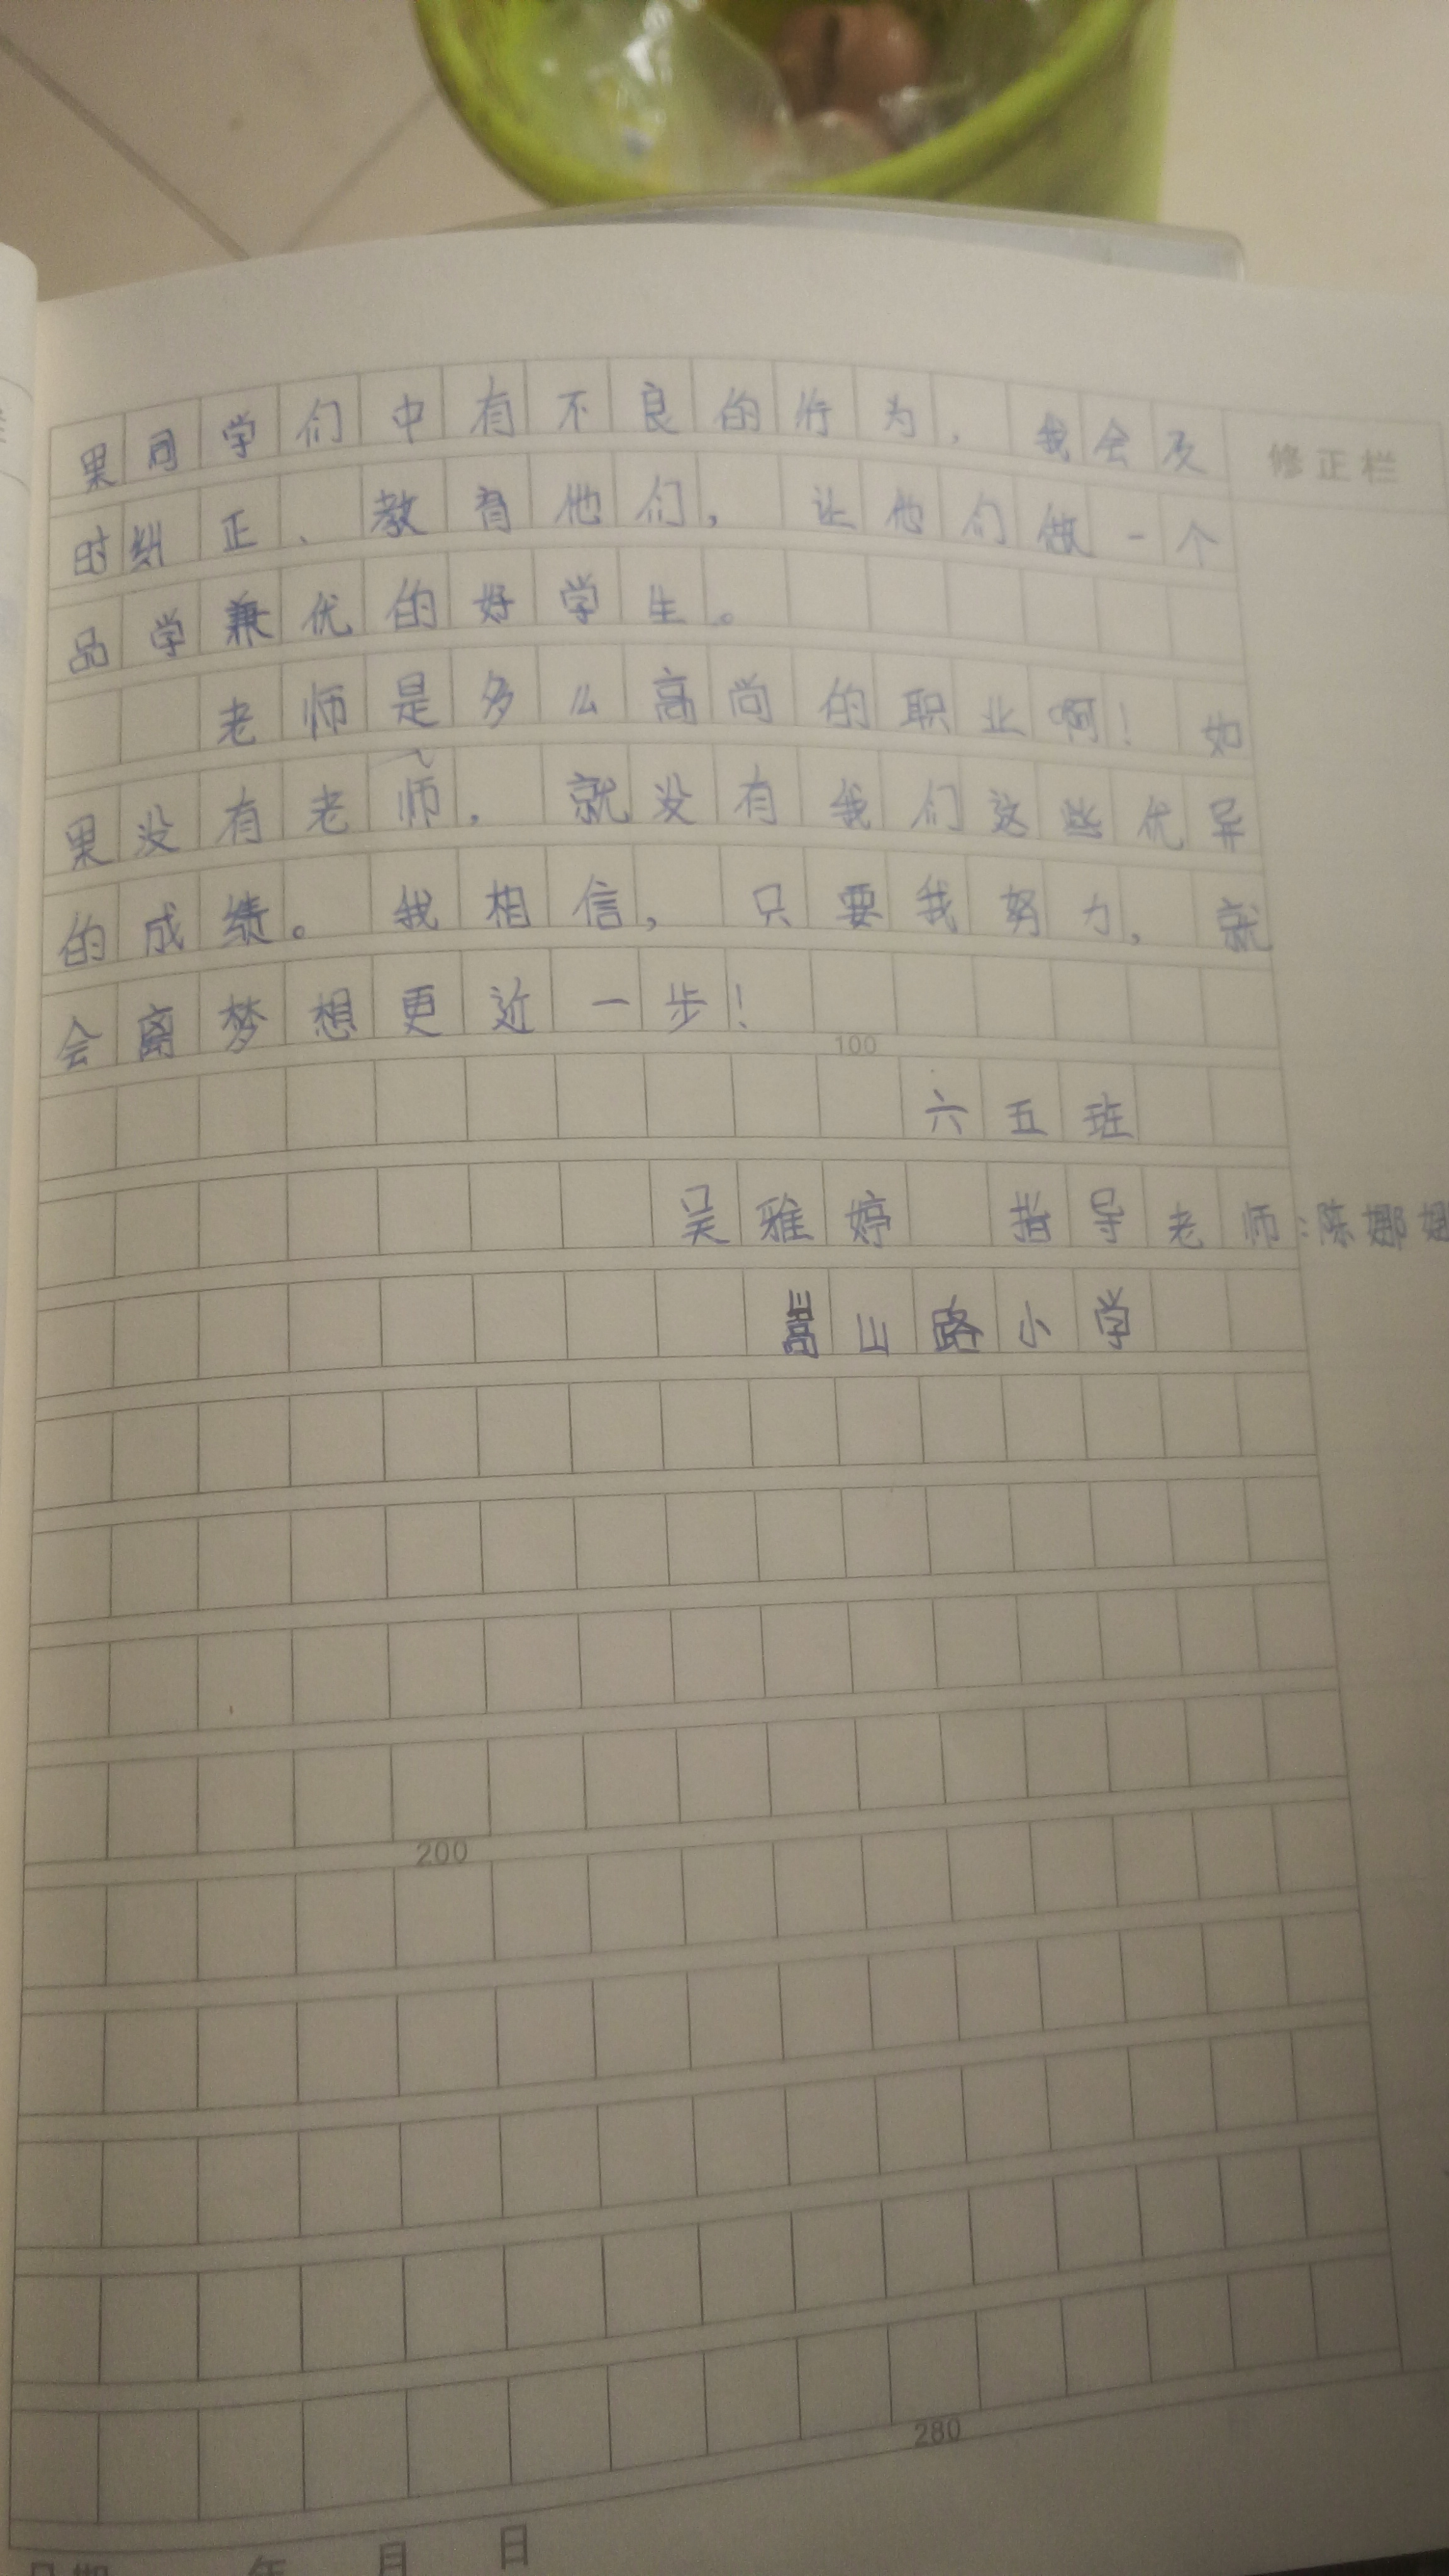 果同学们中有不良的行为，我会及
修正栏
时纠正、教育他们，让他们做一个
品学兼优的好学生。
老师是多么高尚的职业啊！如
果没有老师，就没有我们这些优异
的成绩。我相信，只要我努力，就
会离梦想更近一步！
100
六五班
吴雅婷 指导老师：陈娜娜
嵩山路小学
200
280
日期 年 月 日